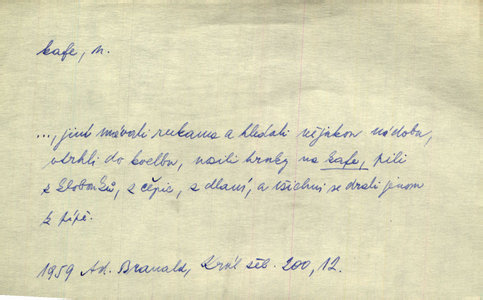 kafe, n.
..., jiní mávali rukama a hledali nějakou nádobu,
vtrhli do kvelbu, nosili hrnky na kafe, pili
z klobouků, z čepic, z dlaní, a všichni se drali jenom
k pípě.
1959 Ad. Branald, Král žeb. 200, 12.